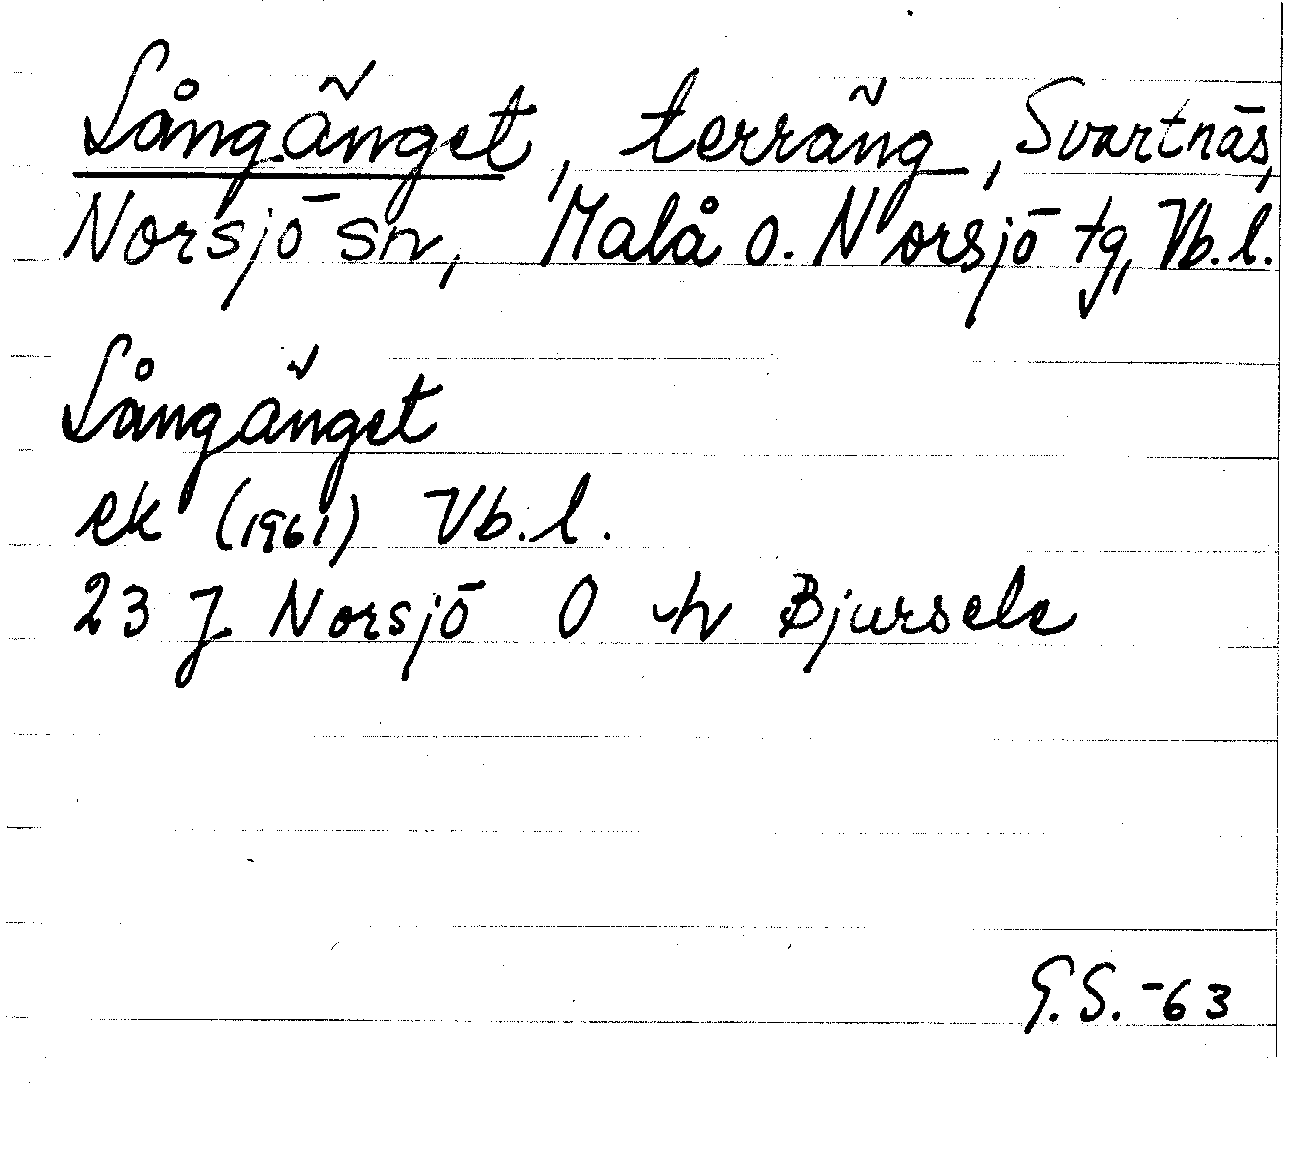 Långänget, terräng, Svartnäs,
Norsjö sn, Malå o. Norsjö tg, Vb. l.
Långänget
ek (1961) Vb. l.
23 J Norsjö O h Bjursele
G.S. -63